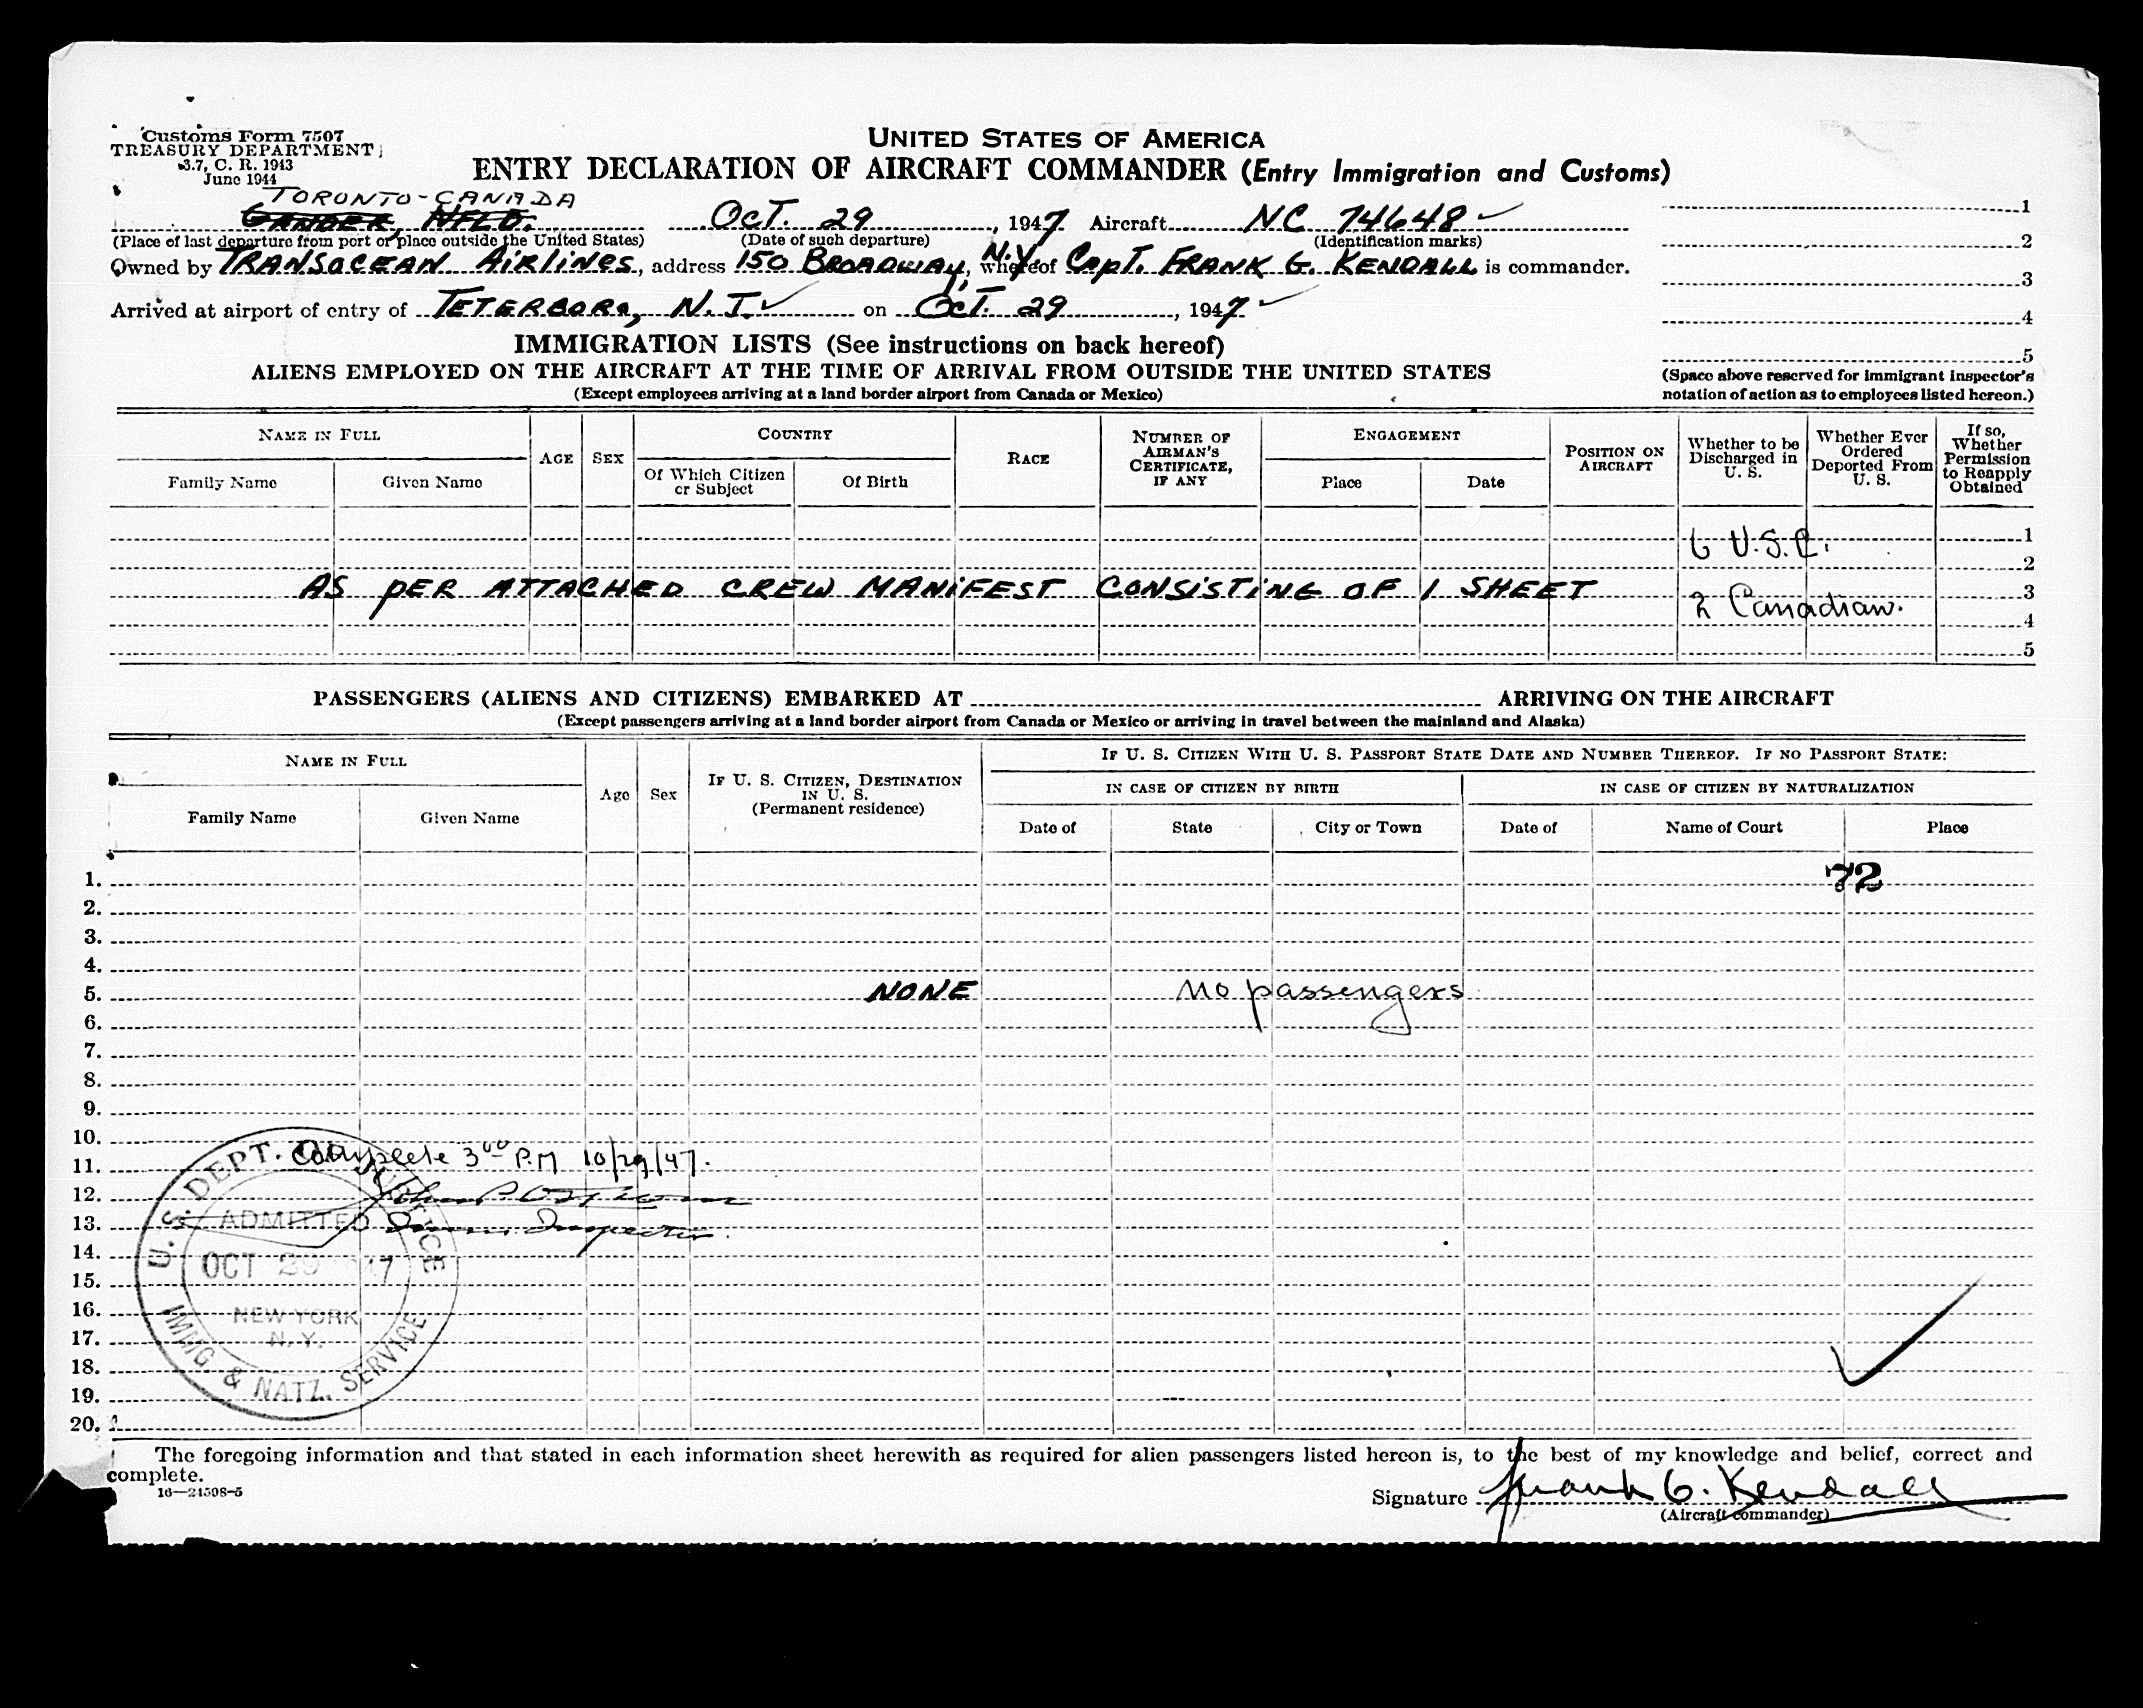 Customs Form 7507
TREASURY DEPARTMENT
3.7, C. R. 1943
June 1944
UNITED STATES OF AMERICA
ENTRY DECLARATION OF AIRCRAFT COMMANDER (Entry Immigration and Customs)
TORONTO-CANADA
GANDER, NFLD. OCT. 29, 1947 Aircraft NC 74648 ✓
(Place of last departure from port or place outside the United States) (Date of such departure) (Identification marks)
Owned by TRANSOCEAN AIRLINES, address 150 BROADWAY, N.Y. whereof CAPT. FRANK G. KENDALL is commander.
Arrived at airport of entry of TETERBORO, N.J. ✓ on OCT. 29, 1947 ✓
1
2
3
4
5
(Space above reserved for immigrant inspector's
notation of action as to employees listed hereon.)
IMMIGRATION LISTS (See instructions on back hereof)
ALIENS EMPLOYED ON THE AIRCRAFT AT THE TIME OF ARRIVAL FROM OUTSIDE THE UNITED STATES
(Except employees arriving at a land border airport from Canada or Mexico)
NAME IN FULL
Family Name Given Name
AGE SEX
COUNTRY
Of Which Citizen or Subject Of Birth
RACE
NUMBER OF AIRMAN'S CERTIFICATE, IF ANY
ENGAGEMENT
Place Date
POSITION ON AIRCRAFT
Whether to be Discharged in U. S.
Whether Ever Ordered Deported From U. S.
If so, Whether Permission to Reapply Obtained
6 U.S.C. 1
2
AS PER ATTACHED CREW MANIFEST CONSISTING OF 1 SHEET 3
2 Canadian. 4
5
PASSENGERS (ALIENS AND CITIZENS) EMBARKED AT ARRIVING ON THE AIRCRAFT
(Except passengers arriving at a land border airport from Canada or Mexico or arriving in travel between the mainland and Alaska)
NAME IN FULL
Family Name Given Name
Age Sex
IF U. S. CITIZEN, DESTINATION IN U. S.
(Permanent residence)
IF U. S. CITIZEN WITH U. S. PASSPORT STATE DATE AND NUMBER THEREOF. IF NO PASSPORT STATE:
IN CASE OF CITIZEN BY BIRTH IN CASE OF CITIZEN BY NATURALIZATION
Date of State City or Town Date of Name of Court Place
1. 72
2.
3.
4.
5. NONE no passengers
6.
7.
8.
9.
10.
11. Complete 3 00 P.M 10/29/47.
12.
13. Imm. Inspector.
14.
15.
16.
17.
18.
19.
20.
U. S. DEPT. OF JUSTICE
ADMITTED
OCT 29 1947
NEW YORK
N. Y.
IMMIG. & NATZ. SERVICE
The foregoing information and that stated in each information sheet herewith as required for alien passengers listed hereon is, to the best of my knowledge and belief, correct and
complete.
16—24598-5
Signature Frank G. Kendall
(Aircraft commander)